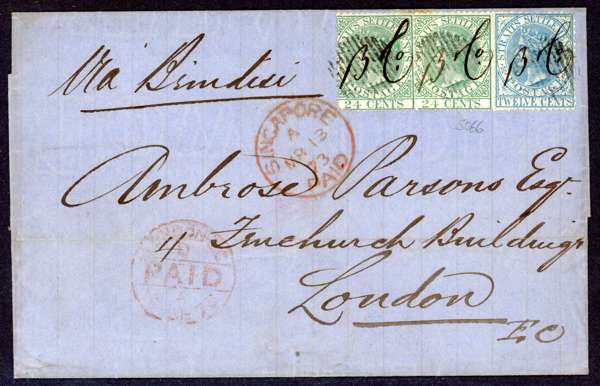 STRAITS SETTLEMENTS
POSTAGE
24 CENTS
B & Co.
POSTAGE
24 CENTS
B & Co.
STRAITS SETTLEMENTS
POSTAGE
TWELVE CENTS
B & Co.
Via Brindisi
5066
SINGAPORE
A
13
73
PAID
Ambrose Parsons Esqr.
4 Fenchurch Buildings
London
E C
LONDON
PAID